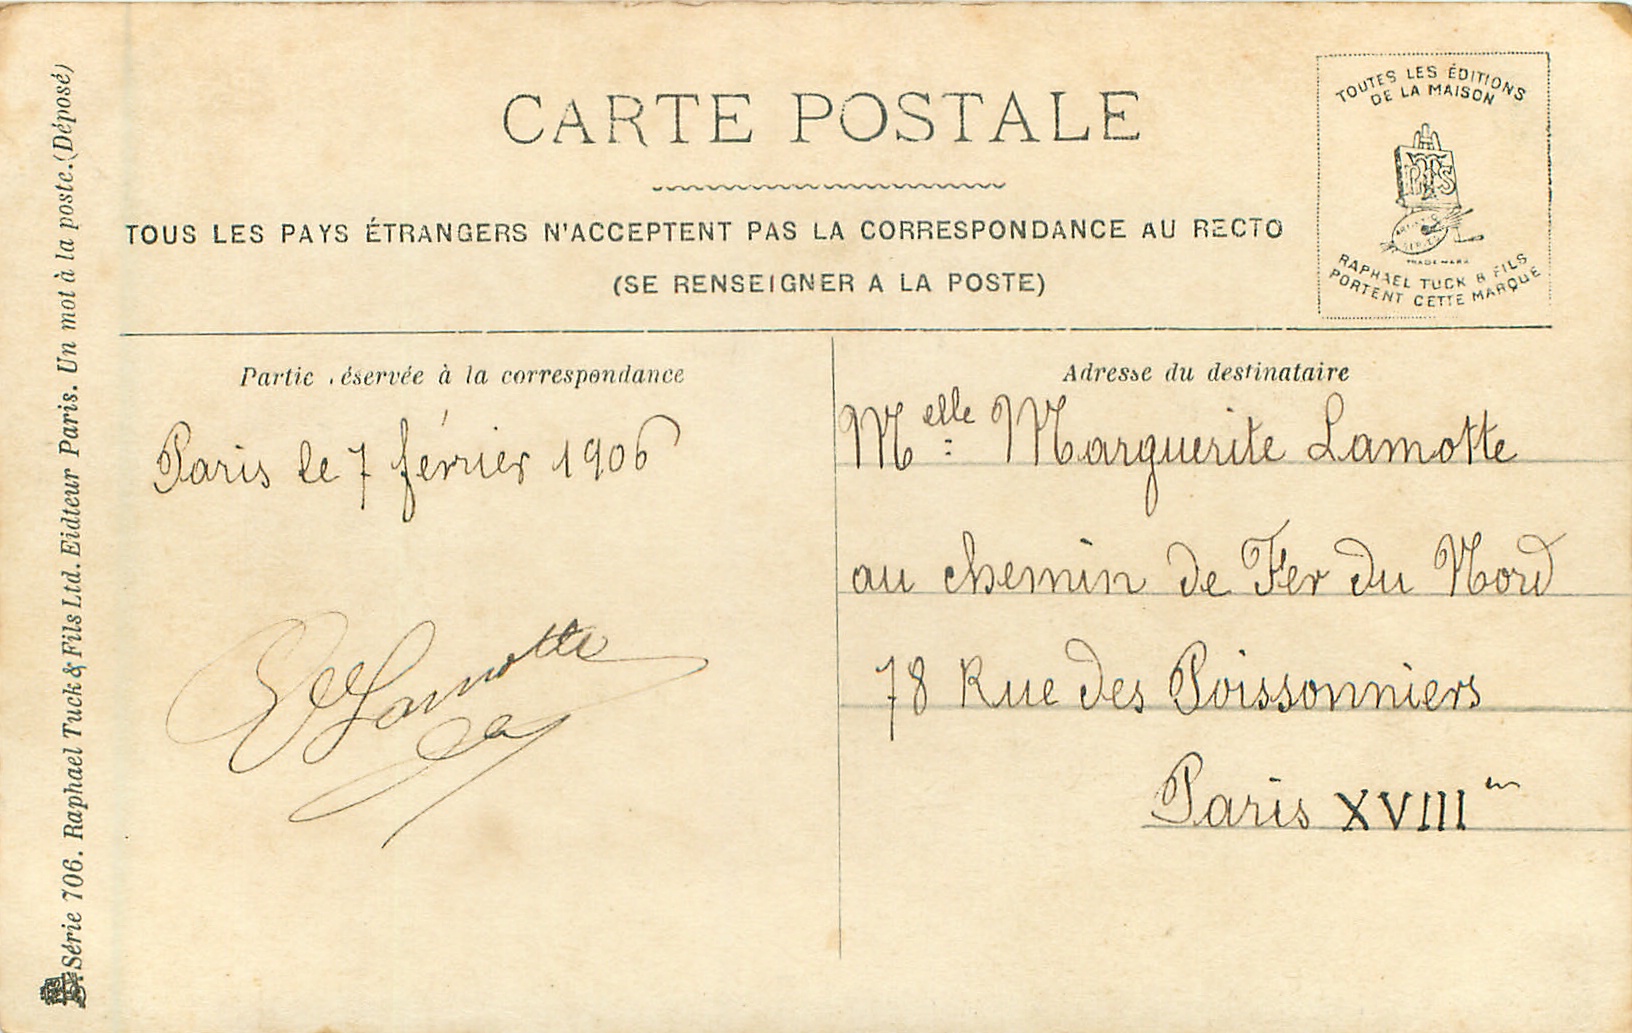 CARTE POSTALE
TOUS LES PAYS ÉTRANGERS N'ACCEPTENT PAS LA CORRESPONDANCE AU RECTO
(SE RENSEIGNER A LA POSTE)
TOUTES LES ÉDITIONS
DE LA MAISON
TRADE MARK
RAPHAEL TUCK & FILS
PORTENT CETTE MARQUE
Série 706. Raphael Tuck & Fils Ltd. Eidteur Paris. Un mot à la poste. (Déposé)
Partie réservée à la correspondance
Paris le 7 février 1906
Lamotte
Adresse du destinataire
Melle Marguerite Lamotte
au chemin de Fer du Nord
78 Rue des Poissonniers
Paris XVIII